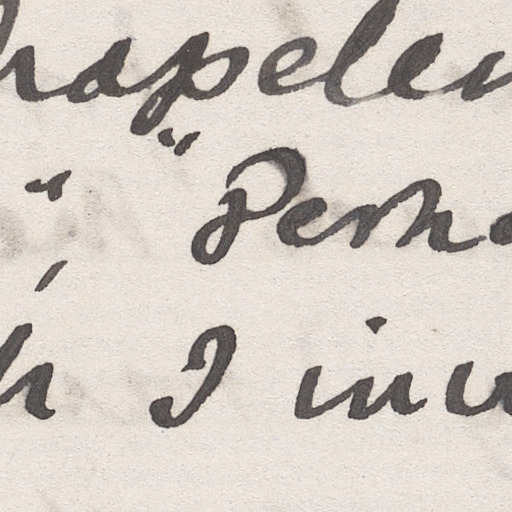 hapelen
" , "Perha
h I inv